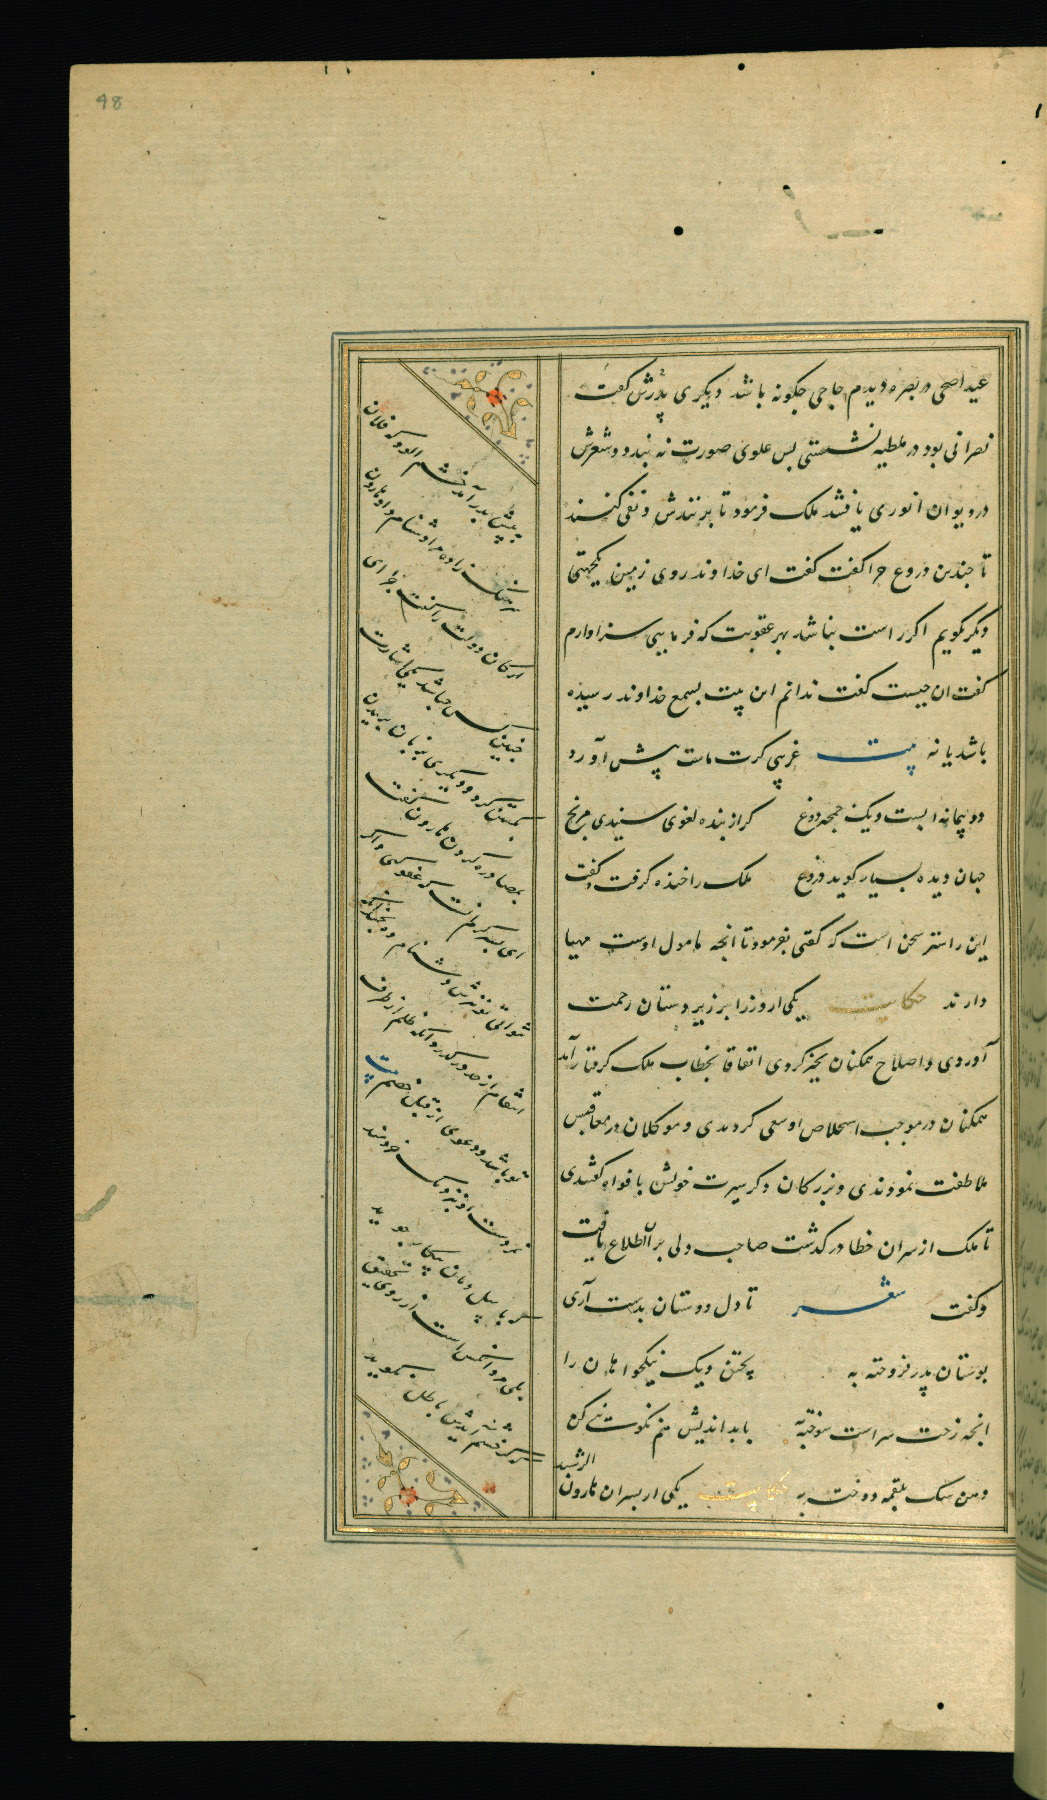 48
عید اضحی در بصره دیدم حاجی چگونه باشد دیگری پدرش گفت
نصرانی بود در ملطیه نشستی بس علوی صورت نه بندد و شعرش
در دیوان انوری یافتند ملک فرمود تا بزنندش و نفی کنند
تا چندین دروغ چرا گفت گفت ای خداوند روی زمین یکی
دیگر بگویم اگر راست نباشد بهر عقوبت که فرمایی سزاوارم
گفت ان چیست گفت ندانم این بیت بسمع خداوند رسیده
باشد یا نه بیت غریبی کرت ماست پیش آورد
دو پیمانه ابست ویک چمچه دوغ کر از بنده لغوی شنیدی مرنج
جهان دیده بسیار کوید دروغ ملک را خنده کرفت و گفت
این راستر سخن است که گفتی بفرمود تا انچه مامول اوست مهیا
دارند حکایت یکی از وزرا بر زیر دستان رحمت
آوردی و اصلاح همکنان بخیر کردی اتفاقا بخطاب ملک کرفتار آمد
همکنان در موجب استخلاص او سعی کردندی و موکلان در معاقبتش
ملاطفت نمودندی و بزرکان ذکر سیرت خوبش بافواه کفتندی
تا ملک از سر ان خطا در کذشت صاحب دلی بر آن اطلاع یافت
و کفت شعر تا دل دوستان بدست آری
بوستان پدر فروخته به پختن دیک نیکخواهان را
انچه رخت سراست سوخته به با بد اندیش هم نکوئی کن
دهن سک بلقمه دوخته به حکایت یکی از پسران هارون الرشید
پیش پدر آمد خشم الود که فلان
سرهنک زاده مرا دشنام داد هارون
ارکان دولت را گفت جزای
چنین کس چه باشد یکی اشارت
بکشتن کرد و دیکری بزبان بریدن
بمصادره کردن هارون گفت
ای پسر کرم انست که عفو کنی و اکر
نتوانی تو نیزش دشنام ده چندانکه
انتقام از حد در نکذرد آنکه ظلم از طرف
تو باشد و دعوی از قبل خصم بیت
نه مردست او نزدیک خردمند
که با پیل دمان پیکار جوید
بلی مرد انکس است از روی تحقیق
که چون خشم آیدش باطل نکوید